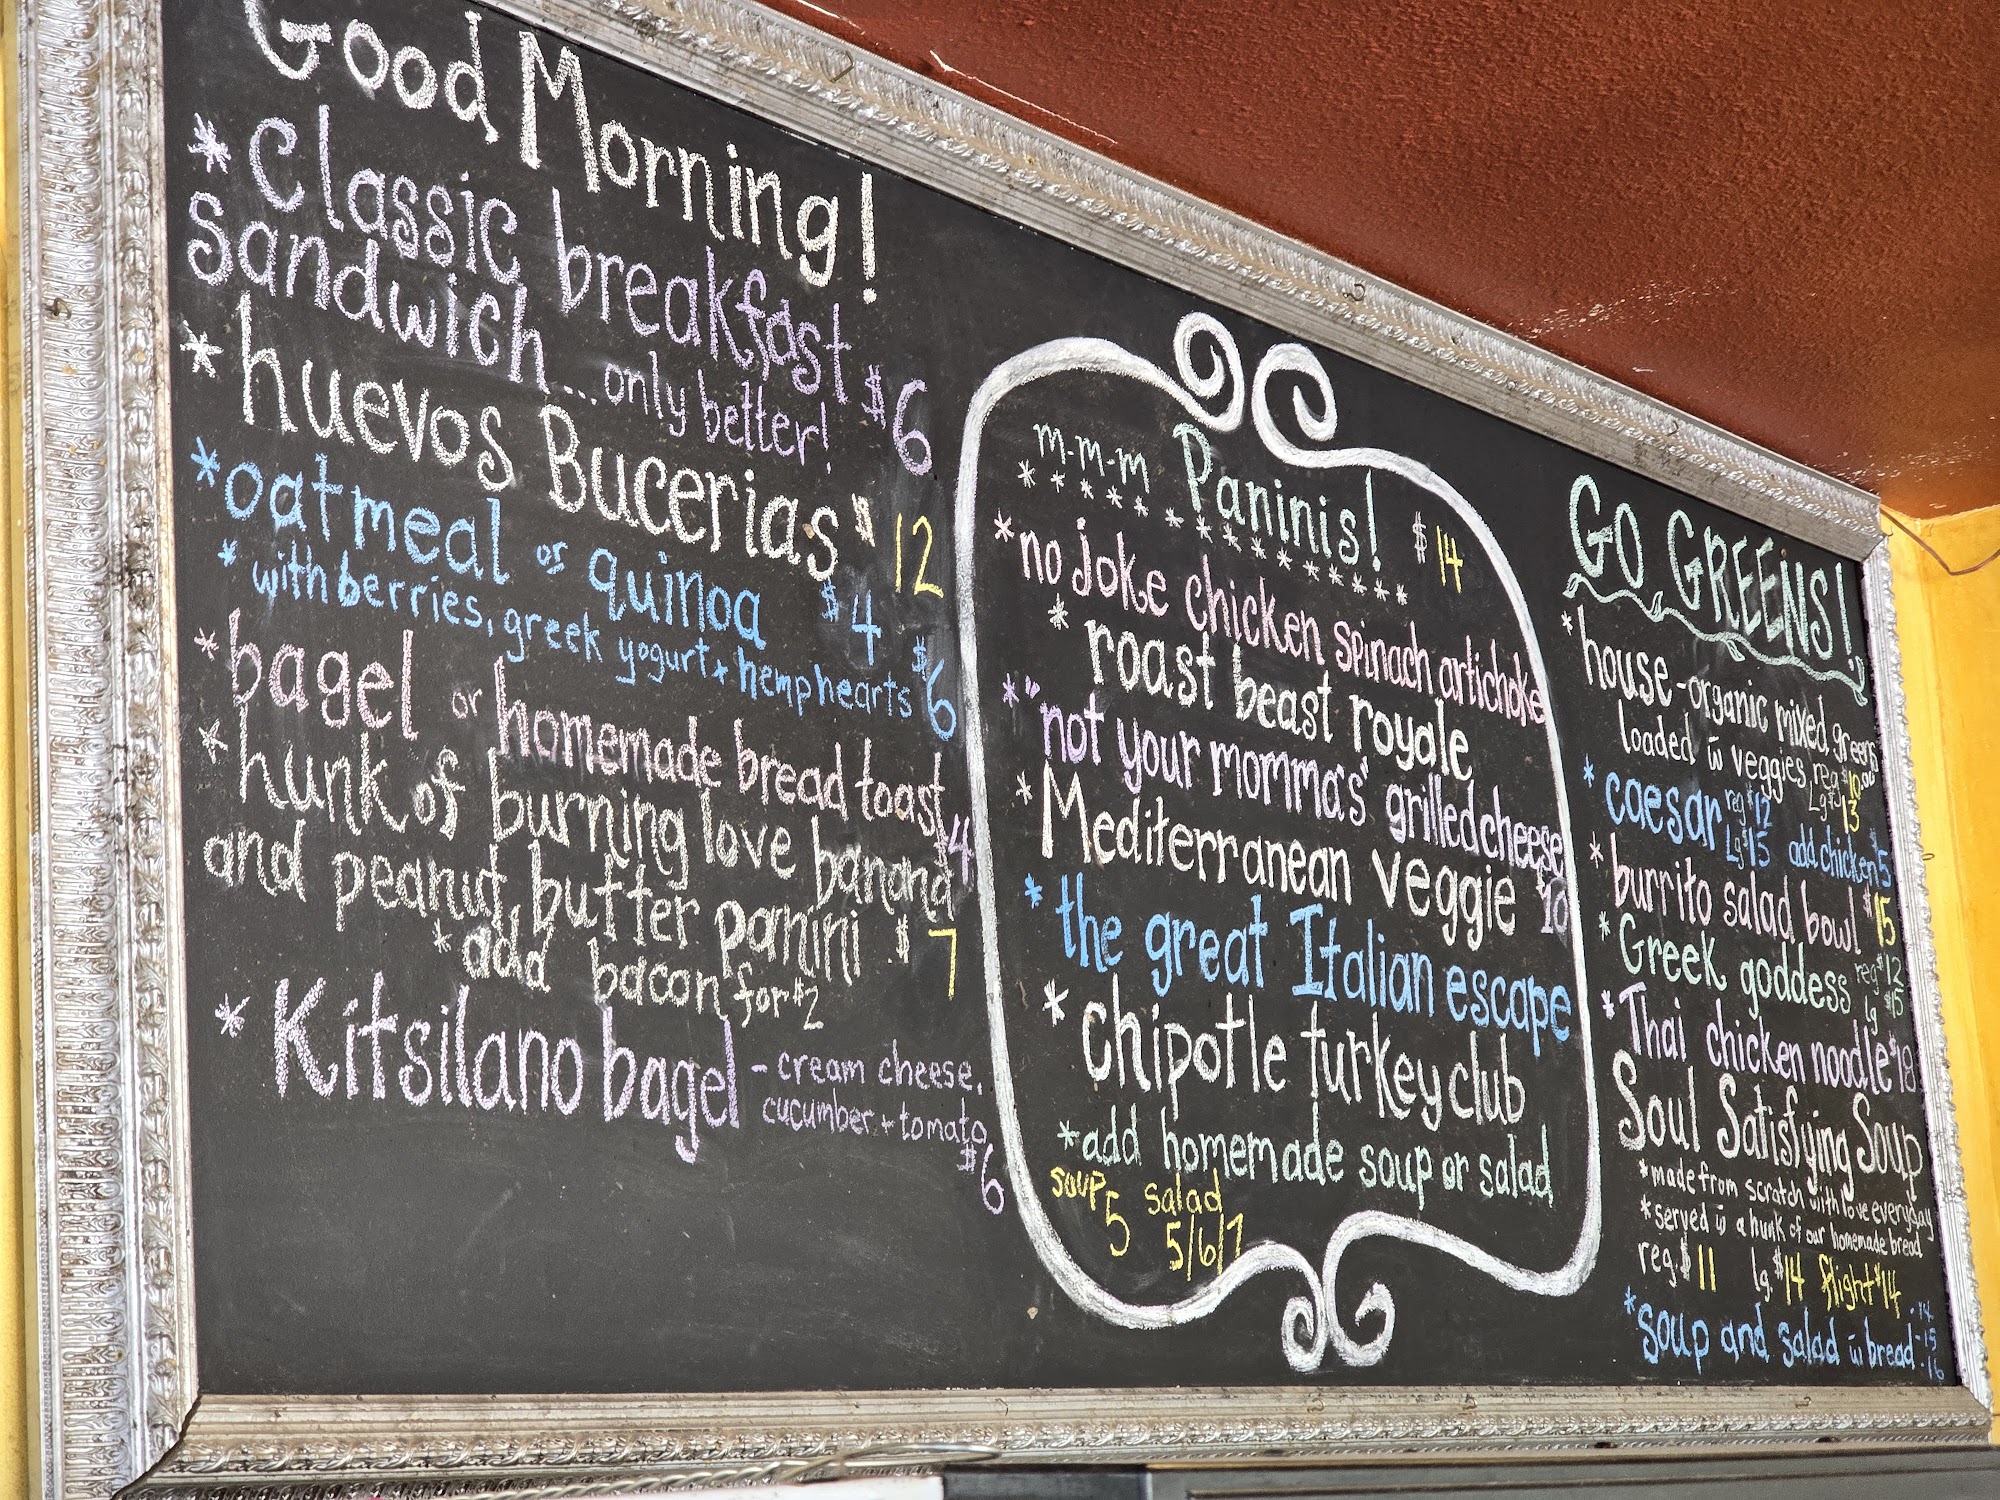 Good Morning!
* Classic breakfast
sandwich...only better! $6
* huevos Bucerias $12
* oatmeal or quinoa $4
* with berries, greek yogurt + hemp hearts $6
* bagel or homemade bread toast $4
* hunk of burning love banana
and peanut butter panini $7
* add bacon for $2
* Kitsilano bagel - cream cheese,
cucumber + tomato
$6
m-m-m Paninis! $14
* no joke chicken spinach artichoke
* roast beast royale
* "not your momma's" grilled cheese
$10
* Mediterranean veggie
* the great Italian escape
* chipotle turkey club
* add homemade soup or salad
soup 5 salad 5/6/7
GO GREENS!
* house - organic mixed greens
loaded w veggies reg $10.00
Lg $13
* caesar reg $12
Lg $15 add chicken $5
* burrito salad bowl $15
* Greek goddess reg $12
lg $15
* Thai chicken noodle $18
Soul Satisfying Soup
* made from scratch with love everyday
* served w a hunk of our homemade bread
reg. $11 lg. $14 flight $14
* soup and salad w bread 14
15
16